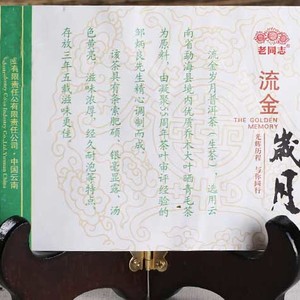 老同志
流金
THE GOLDEN
MEMORY
歲月
光辉历程 与你同行
流金岁月普洱茶（生茶），选用云
南省勐海县境内优质乔木大叶晒青毛茶
为原料，由凝聚55周年茶叶审评经验的
邹炳良先生精心调制而成。
该茶具有条索肥硕，银毫显露，汤
色黄亮，滋味浓厚，经久耐泡等特点，
存放三年五载滋味更佳
业有限责任公司·中国云南